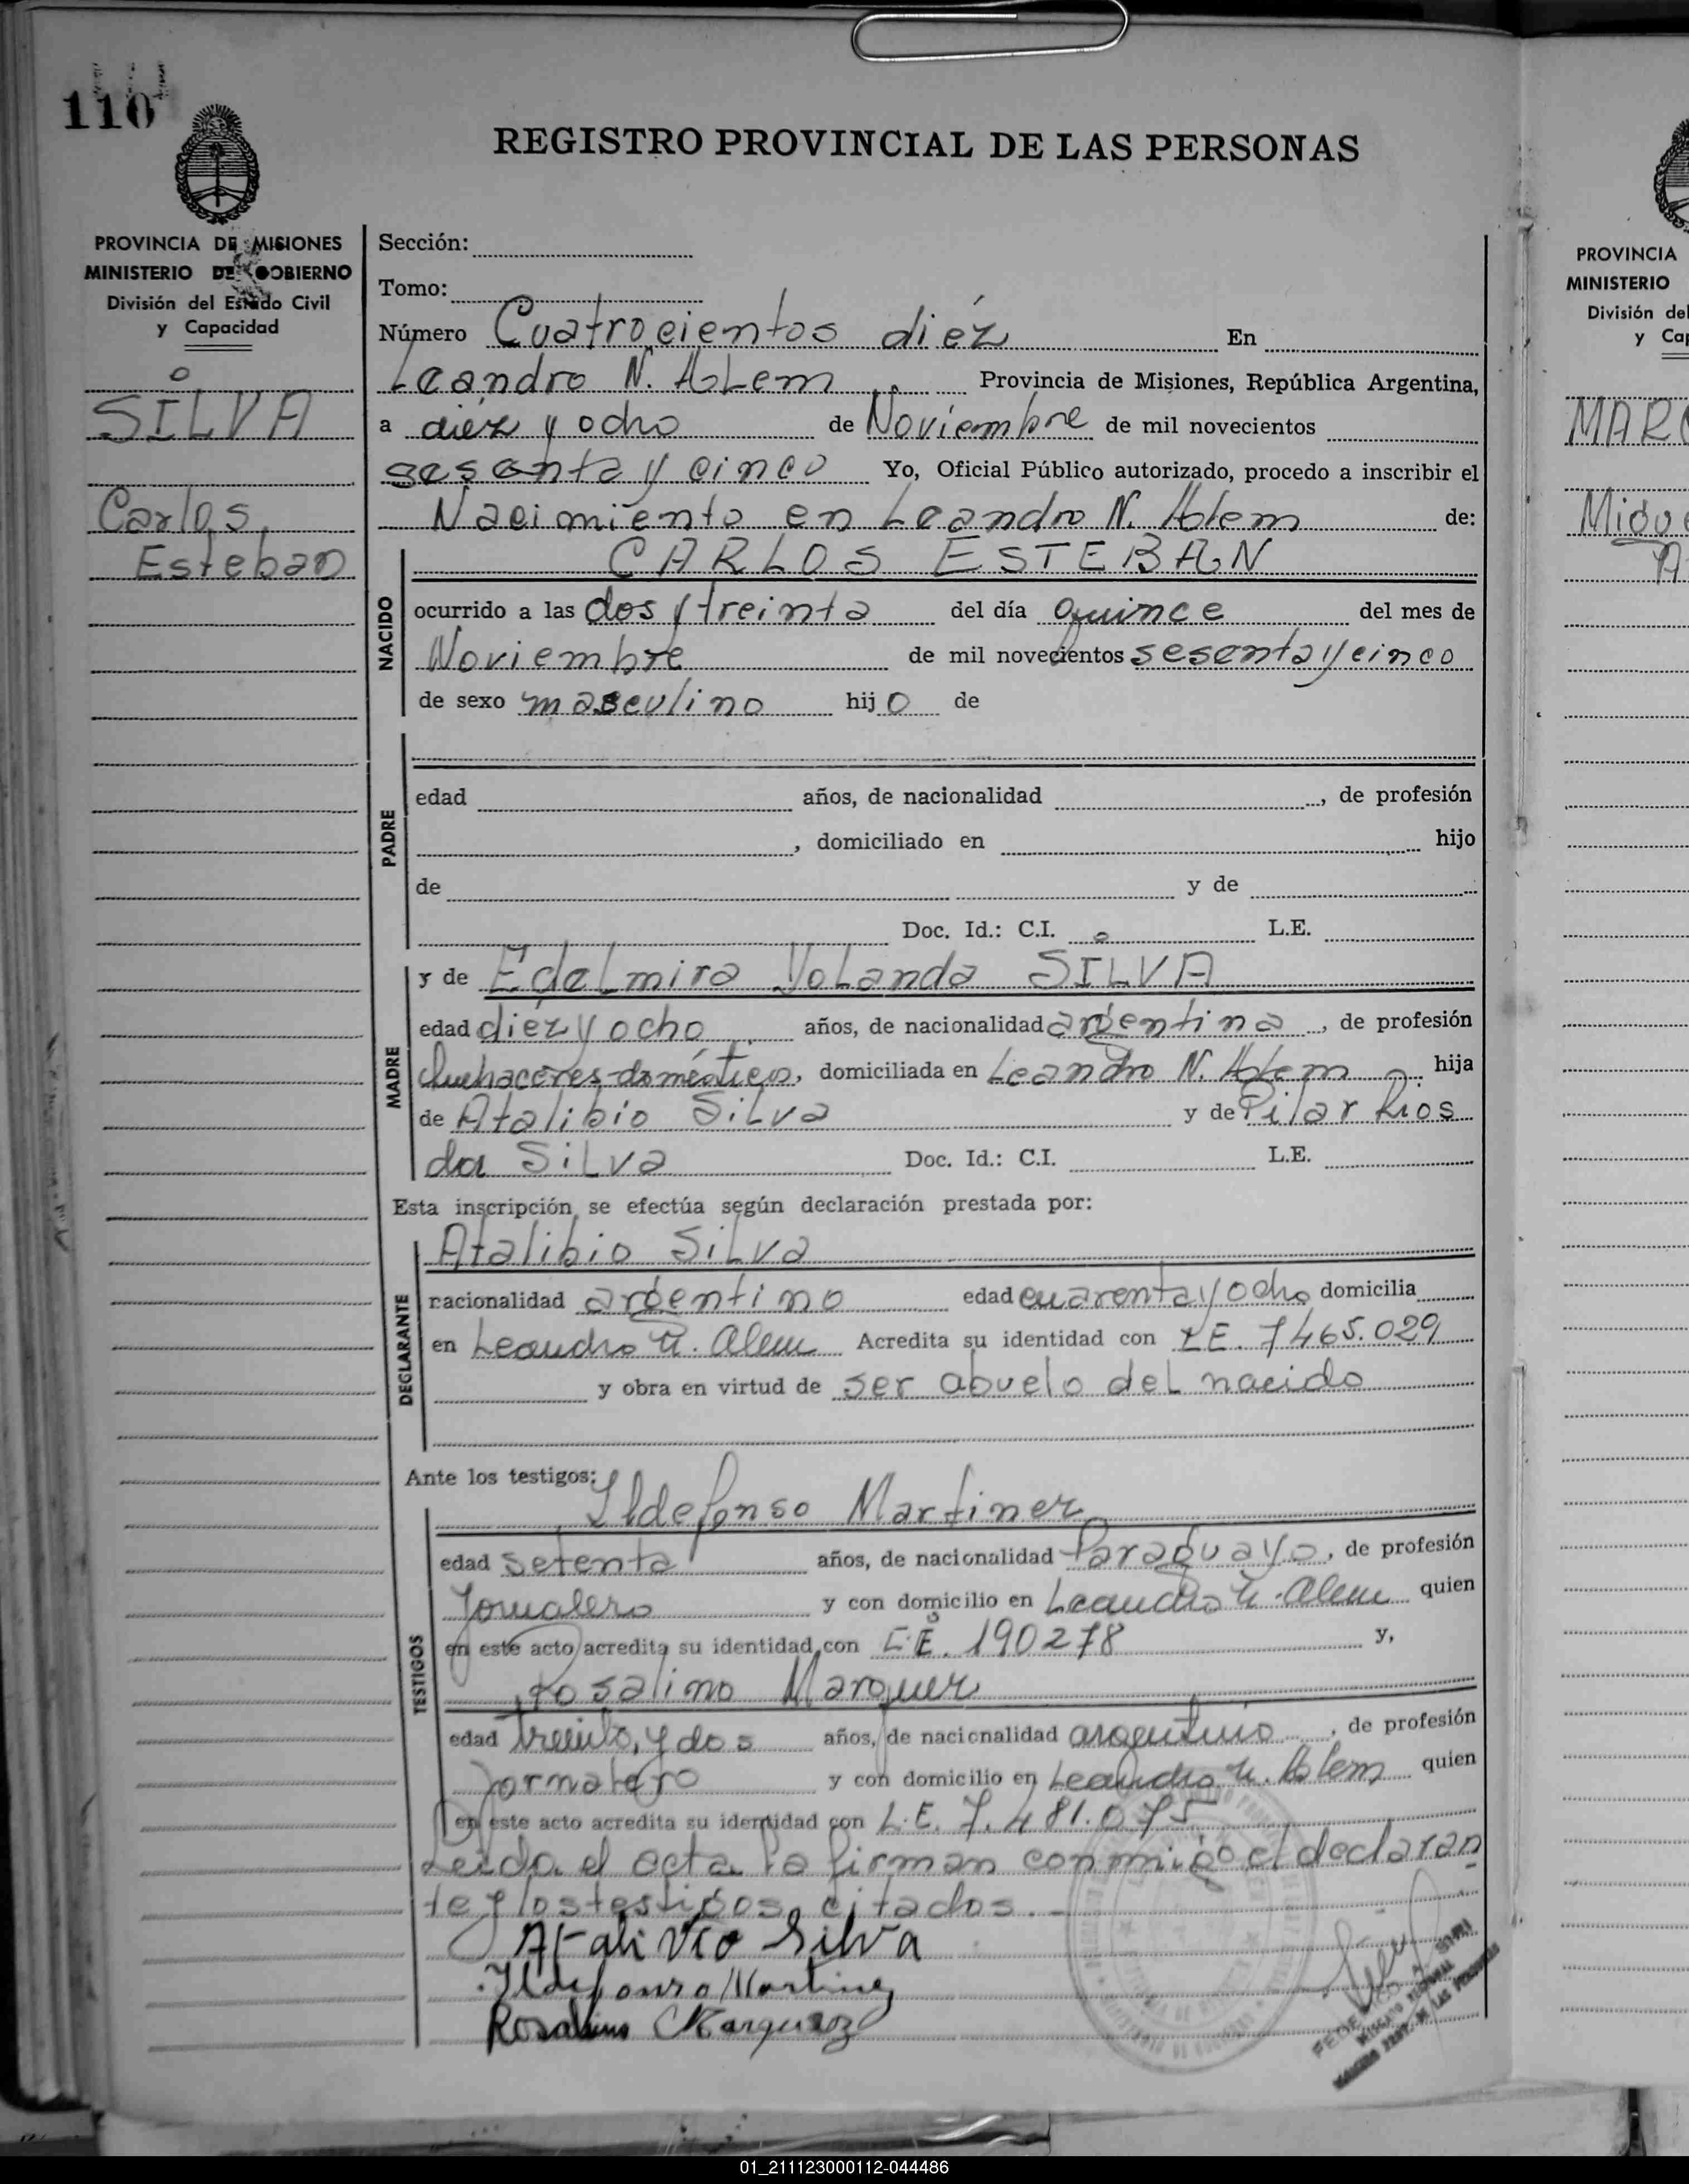 110
REGISTRO PROVINCIAL DE LAS PERSONAS
PROVINCIA DE MISIONES
MINISTERIO DE GOBIERNO
División del Estado Civil
y Capacidad
SILVA
Carlos,
Esteban
Sección:
Tomo:
Número Cuatrocientos diéz En
Leandro N. Alem Provincia de Misiones, República Argentina,
a diéz y ocho de Noviembre de mil novecientos
sesenta y cinco Yo, Oficial Público autorizado, procedo a inscribir el
Nacimiento en Leandro N. Alem de:
NACIDO
CARLOS ESTEBAN
ocurrido a las dos y treinta del día quince del mes de
Noviembre de mil novecientos sesenta y cinco
de sexo masculino hijo de
PADRE
edad años, de nacionalidad , de profesión
, domiciliado en hijo
de y de
Doc. Id.: C.I. L.E.
MADRE
y de Edelmira Yolanda SILVA
edad diéz y ocho años, de nacionalidad argentina, de profesión
Quehaceres-domésticos, domiciliada en Leandro N. Alem hija
de Atalibio Silva y de Pilar Rios
da Silva Doc. Id.: C.I. L.E.
Esta inscripción se efectúa según declaración prestada por:
DECLARANTE
Atalibio Silva
nacionalidad argentino edad cuarenta y ocho domicilia
en Leandro N. Alem Acredita su identidad con L.E. 7465.029
y obra en virtud de ser abuelo del nacido
Ante los testigos:
TESTIGOS
Ildefonso Martinez
edad setenta años, de nacionalidad Paraguayo, de profesión
Jornalero y con domicilio en Leandro N. Alem quien
en este acto acredita su identidad con C.E. 190278 y,
Rosalino Marquez
edad treinta y dos años, de nacionalidad argentino, de profesión
Jornalero y con domicilio en Leandro N. Alem quien
en este acto acredita su identidad con L.E. 7.481.075
Leida el acta la firman conmigo el declaran
te y los testigos citados.-
Atalivio Silva
Ildefonso Martinez
Rosalino Marquez
PROVINCIA
MINISTERIO
División del
y Cap
MAR
Migue
A
01_211123000112-044486